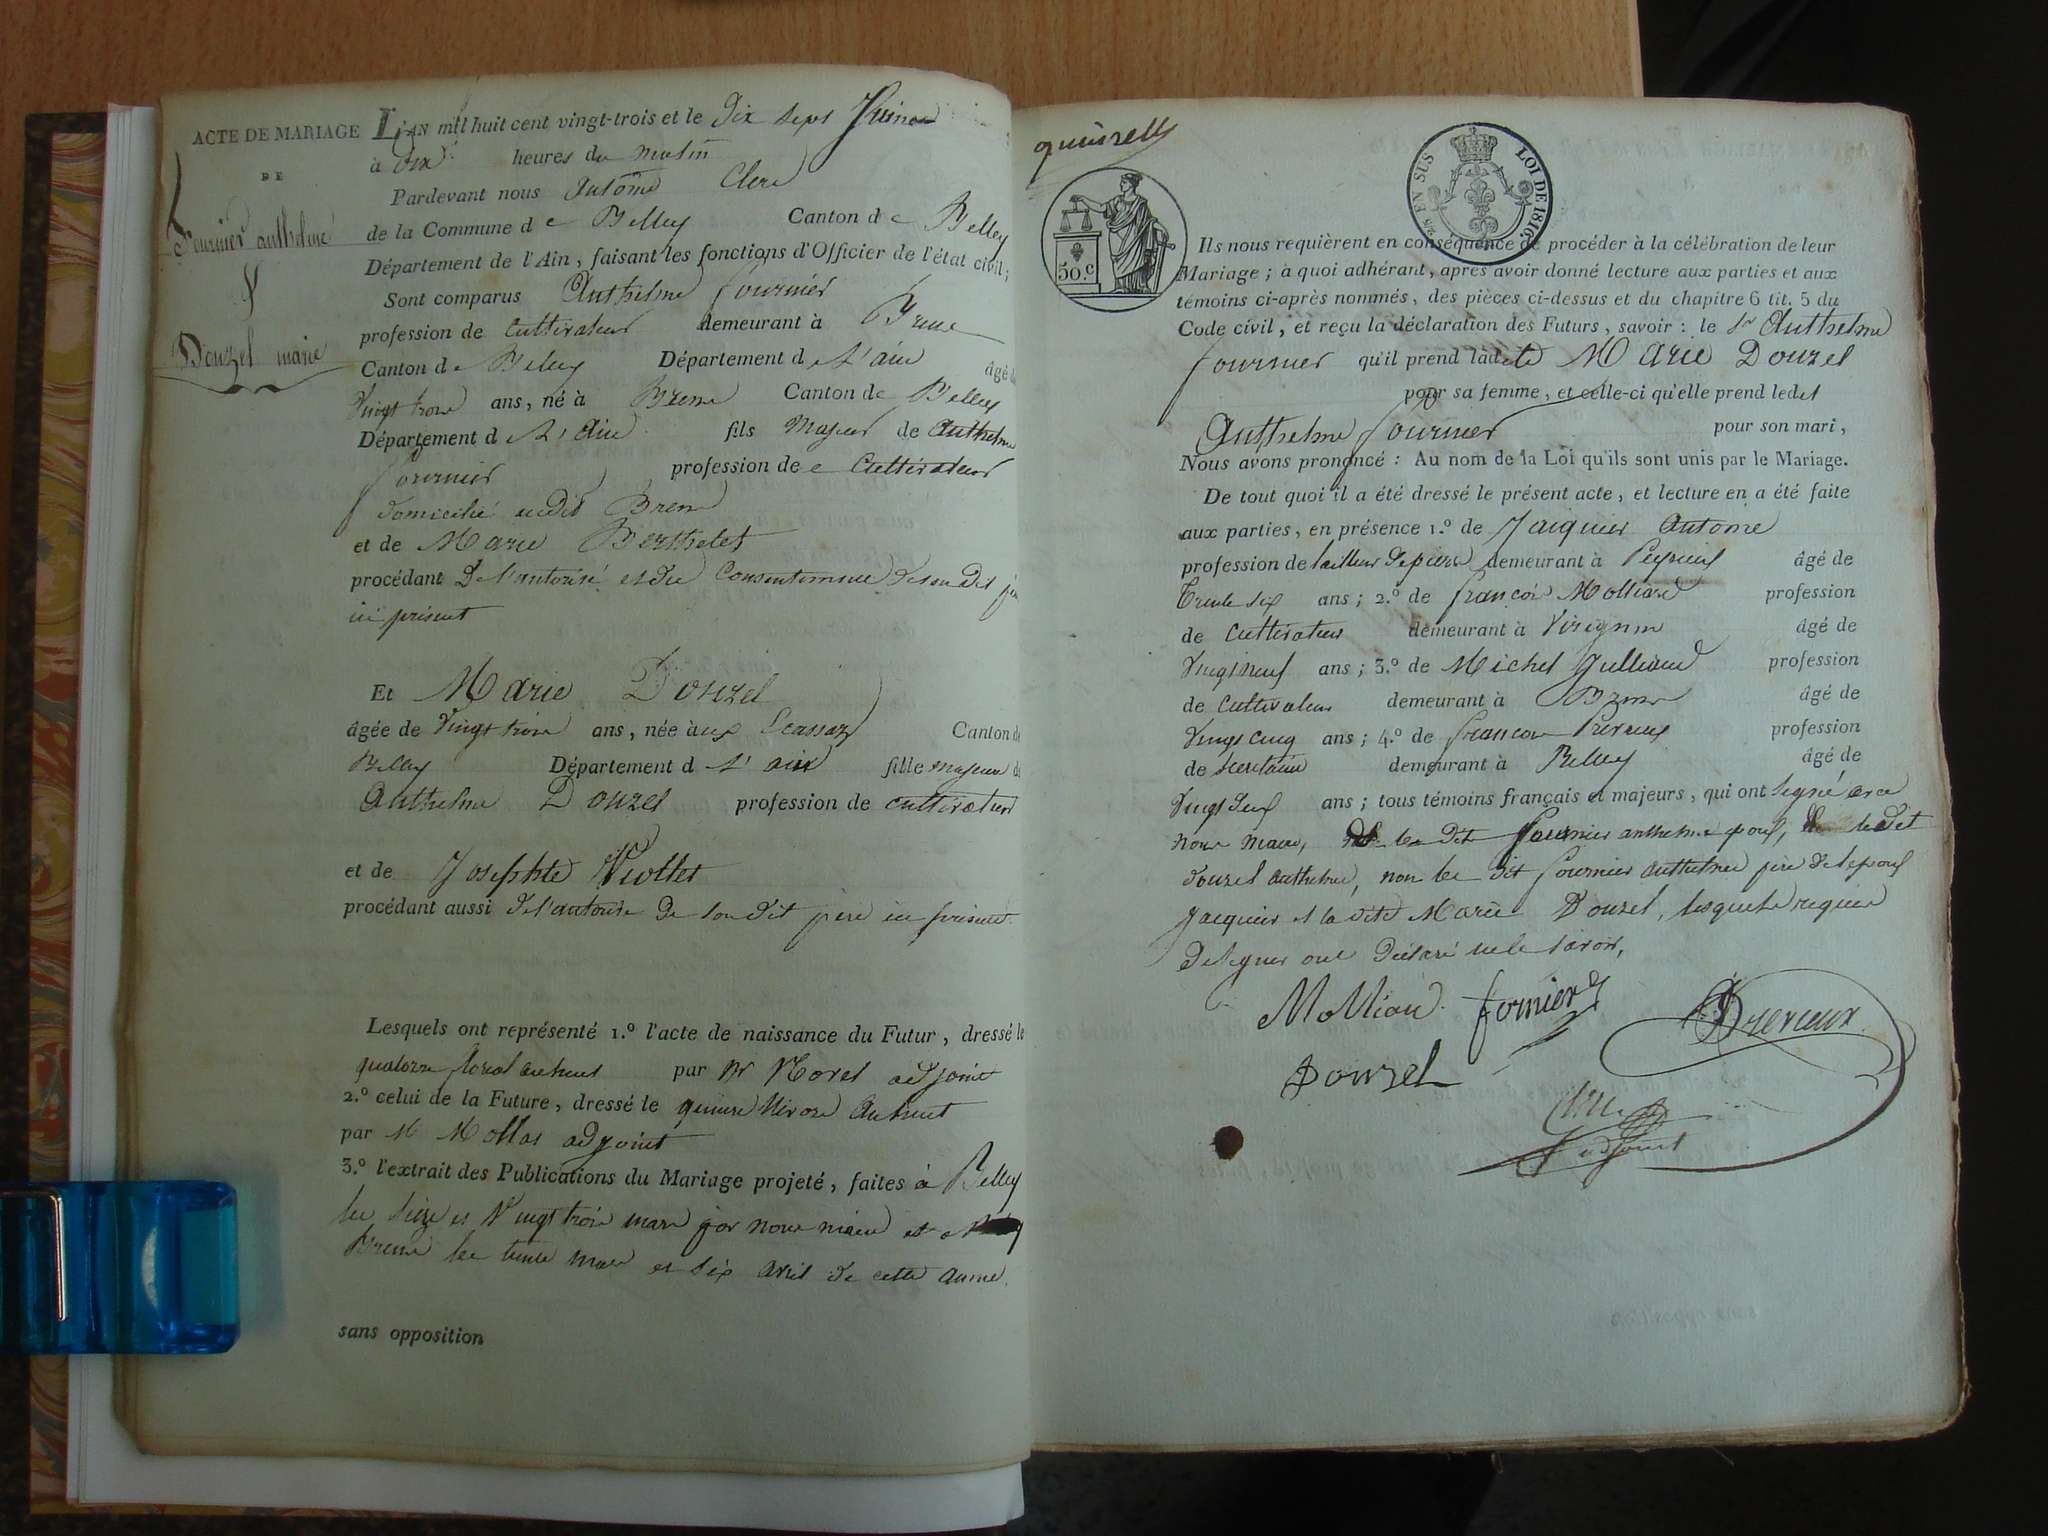 ACTE DE MARIAGE
DE
Fournier anthelme
&
Douzel marie
L'AN mil huit cent vingt-trois et le Dix sept Juin
à Dix heures du matin
Pardevant nous Antoine Clerc
de la Commune de Belley Canton de Belley
Département de l'Ain, faisant les fonctions d'Officier de l'état civil;
Sont comparus Anthelme fournier
profession de cultivateur demeurant à Brens
Canton de Belley Département de L'ain âgé de
Vingt trois ans, né à Brens Canton de Belley
Département de L'Ain fils Majeur de Anthelme
fournier profession de cultivateur
domicilié audit Brens
et de Marie Berthelet
procédant De l'autorité et du Consentement de son dit père
ici présent
Et Marie Douzel
âgée de Vingt trois ans, née aux Ecassaz Canton de
Belley Département de L'ain fille majeure de
Anthelme Douzel profession de cultivateur
et de Josephte Viollet
procédant aussi de l'autorité de son dit père ici présent
Lesquels ont représenté 1.º l'acte de naissance du Futur, dressé le
quatorze floréal an huit par Mr Morel adjoint
2.º celui de la Future, dressé le Nivose an huit
par M Mollas adjoint
3.º l'extrait des Publications du Mariage projeté, faites à Belley
les Seize et Vingt trois mars par nous maire et a
Brens les trente mars et six avril de cette année.
sans opposition
50.c
EN SUS LOI DE 1816.
Ils nous requièrent en conséquence de procéder à la célébration de leur
Mariage; à quoi adhérant, après avoir donné lecture aux parties et aux
témoins ci-après nommés, des pièces ci-dessus et du chapitre 6 tit. 5 du
Code civil, et reçu la déclaration des Futurs, savoir: le Sr Anthelme
fournier qu'il prend ladete Marie Douzel
pour sa femme, et celle-ci qu'elle prend ledet
Anthelme fournier pour son mari,
Nous avons prononcé: Au nom de la Loi qu'ils sont unis par le Mariage.
De tout quoi il a été dressé le présent acte, et lecture en a été faite
aux parties, en présence 1.º de Jacquier Antoine
profession de tailleur de pierre demeurant à Peyrieu âgé de
Trente six ans; 2.º de françois Molliard profession
de cultivateur demeurant à Virignin âgé de
Vingt neuf ans; 3.º de Michel Gulliand profession
de cultivateur demeurant à Brens âgé de
Vingt cinq ans; 4.º de françois Previeux profession
de secrétaire demeurant à Belley âgé de
ans; tous témoins français et majeurs, qui ont signé avec
nous maire, les dits fournier anthelme époux, ledit
douzel anthelme, non les dit fournier anthelme père de l'époux
Jacquier et la dite Marie Douzel, lesquels requis
de signer ont déclaré ne le savoir,
Molliard fornier Previeux
Douzel
Clerc
adjoint
sans opposition